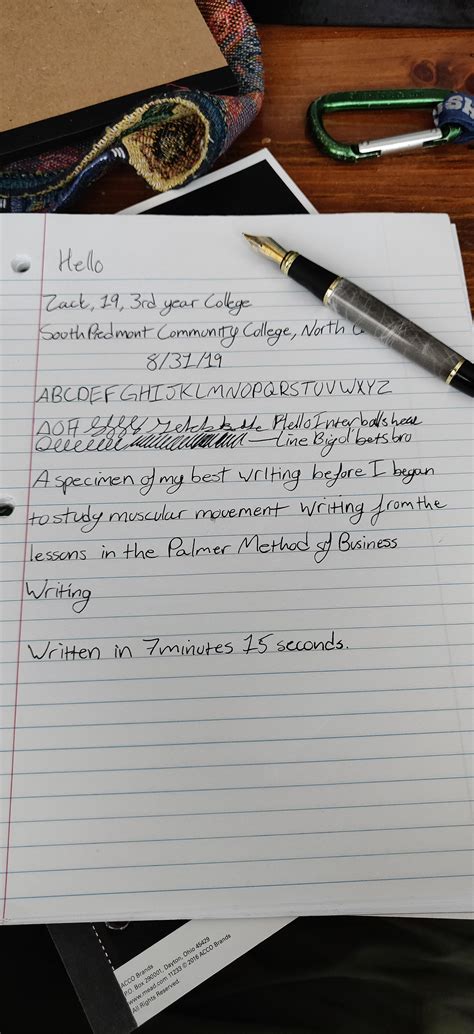 SH
Hello
Zack, 19, 3rd year College
South Piedmont Community College, North
8/31/19
ABCDEFGHIJKLMNOPQRSTUVWXYZ
Hello
Line Big
bro
A specimen of my best writing before I began
to study muscular movement writing from the
lessons in the Palmer Method of Business
Writing
Written in 7minutes 15 seconds.
ACCO Brands
P.O. Box 290001, Dayton, Ohio 45429
www.mead.com 11233 © 2016 ACCO Brands
All Rights Reserved.